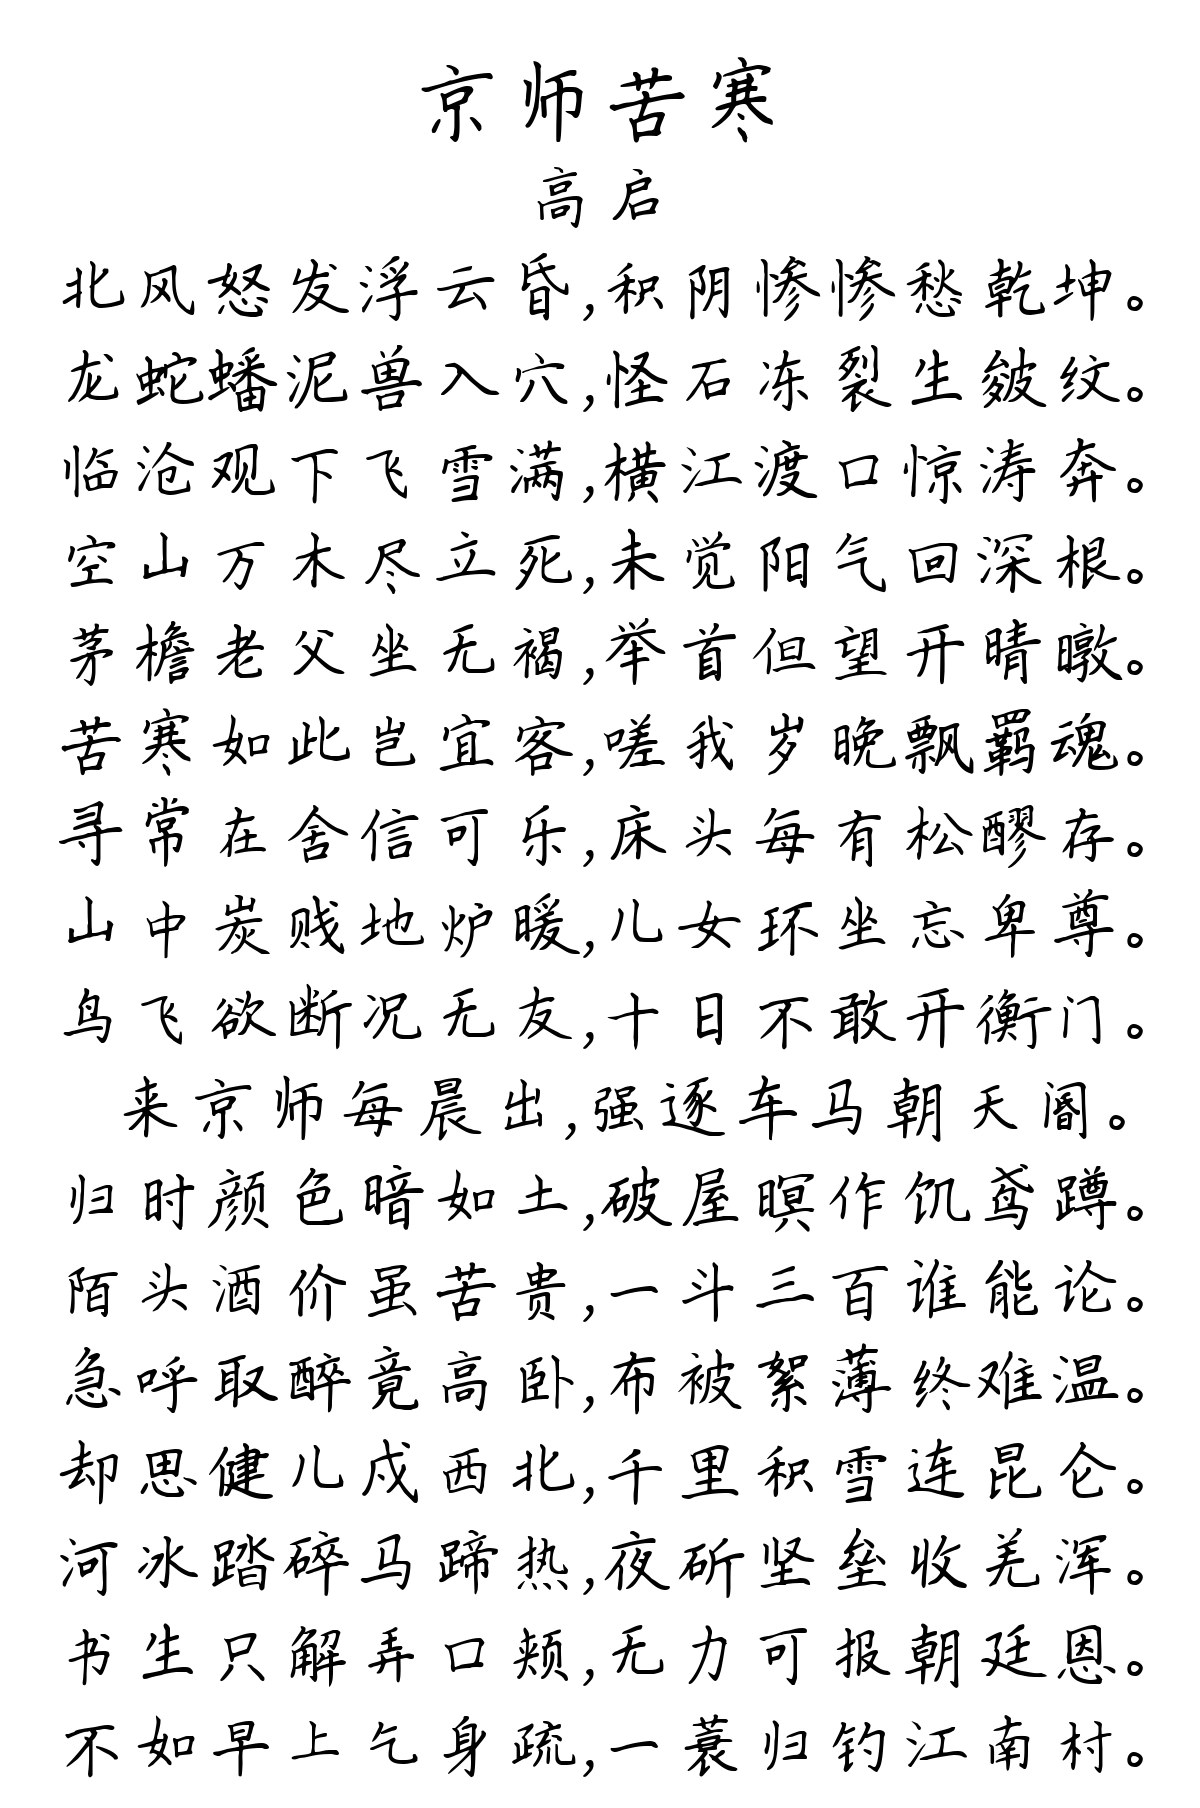 京师苦寒
高启
北风怒发浮云昏,积阴惨惨愁乾坤。
龙蛇蟠泥兽入穴,怪石冻裂生皴纹。
临沧观下飞雪满,横江渡口惊涛奔。
空山万木尽立死,未觉阳气回深根。
茅檐老父坐无褐,举首但望开晴暾。
苦寒如此岂宜客,嗟我岁晚飘羁魂。
寻常在舍信可乐,床头每有松醪存。
山中炭贱地炉暖,儿女环坐忘卑尊。
鸟飞欲断况无友,十日不敢开衡门。
来京师每晨出,强逐车马朝天阍。
归时颜色暗如土,破屋暝作饥鸢蹲。
陌头酒价虽苦贵,一斗三百谁能论。
急呼取醉竟高卧,布被絮薄终难温。
却思健儿戍西北,千里积雪连昆仑。
河冰踏碎马蹄热,夜斫坚垒收羌浑。
书生只解弄口颊,无力可报朝廷恩。
不如早上乞身疏,一蓑归钓江南村。